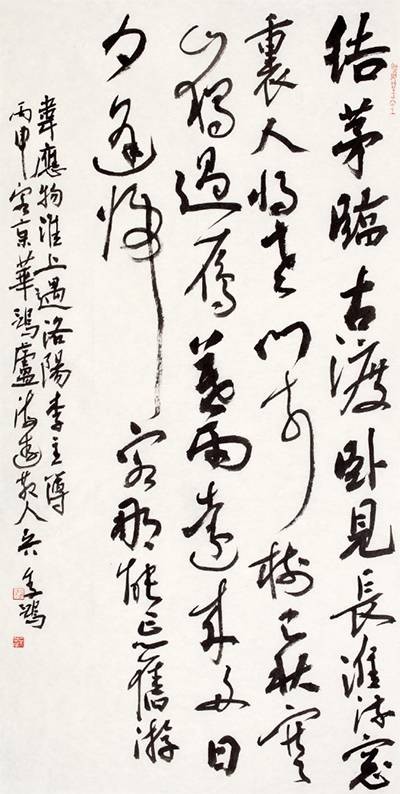 結茅臨古渡卧見長淮流窓
裏人將老門前樹已秋寒
山獨過雁暮雨遠來舟日
夕逢歸客那能忘舊游
韋應物淮上遇洛陽李主簿
丙申客京華鴻廬